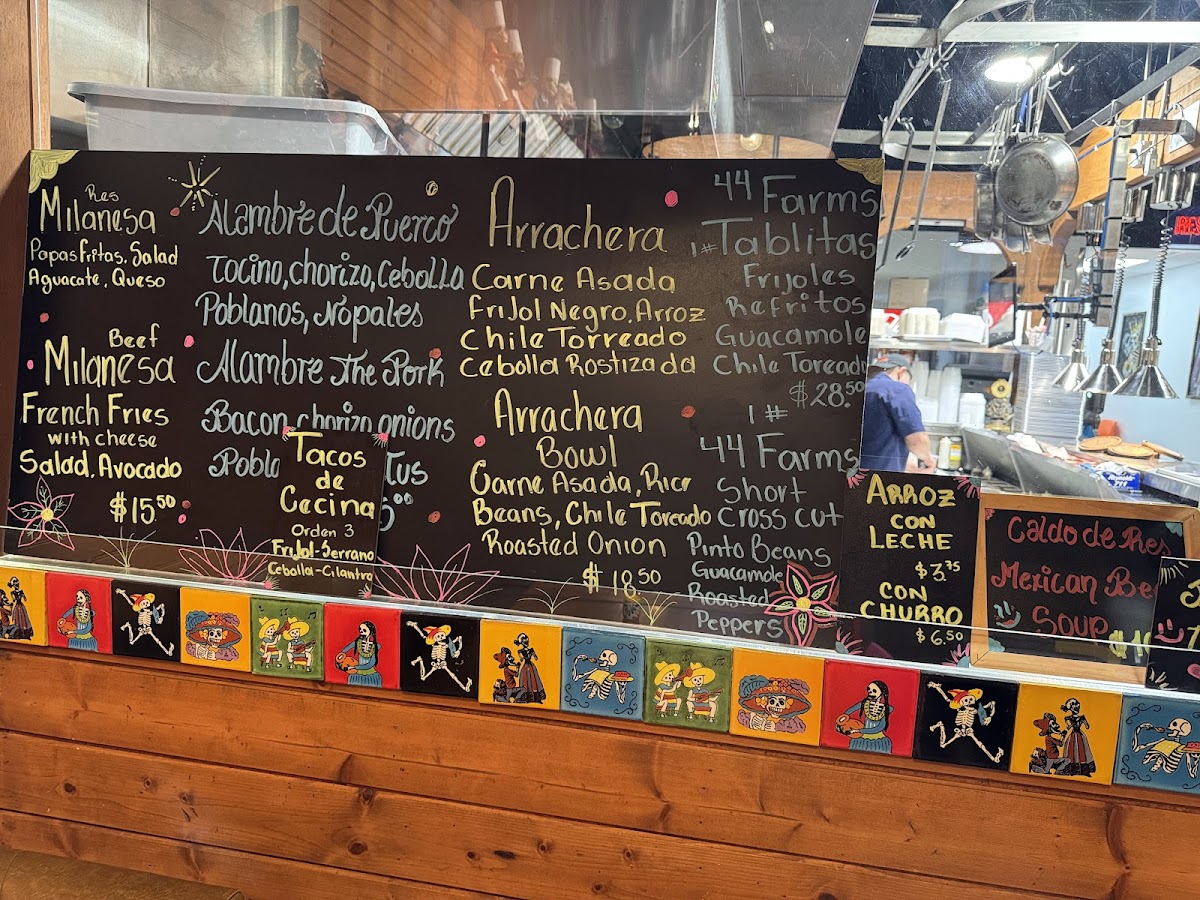 Res
Milanesa
Papas Fritas, Salad
Aguacate, Queso
Beef
Milanesa
French Fries
with cheese
Salad, Avocado
$15.50
Alambre de Puerco
Tocino, chorizo, Cebolla
Poblanos, Nopales
Alambre The Pork
Bacon, chorizo, onions
Tacos
de
Cecina
Orden 3
Frijol-Serrano
Cebolla-Cilantro
Arrachera
Carne Asada
Frijol Negro, Arroz
Chile Torreado
Cebolla Rostizada
Arrachera
Bowl
Carne Asada, Rice
Beans, Chile Toreado
Roasted Onion
$18.50
44 Farms
1# Tablitas
Frijoles
Refritos
Guacamole
Chile Toreado
$28.50
1#
44 Farms
Short
Cross cut
Pinto Beans
Guacamole
Roasted
Peppers
Arroz
con
Leche
$3.75
con
Churro
$6.50
Caldo de Res
Mexican Be
Soup